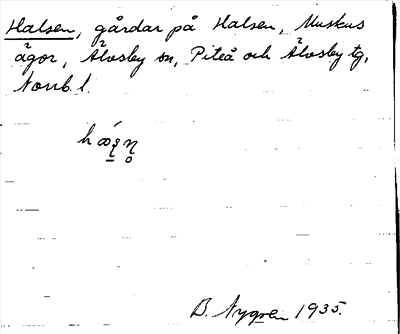 Halsen, gårdar på Halsen, Muskus
ägor, Älvsby sn, Piteå och Älvsby tg,
Norrb. l.
B. Nygren 1935.